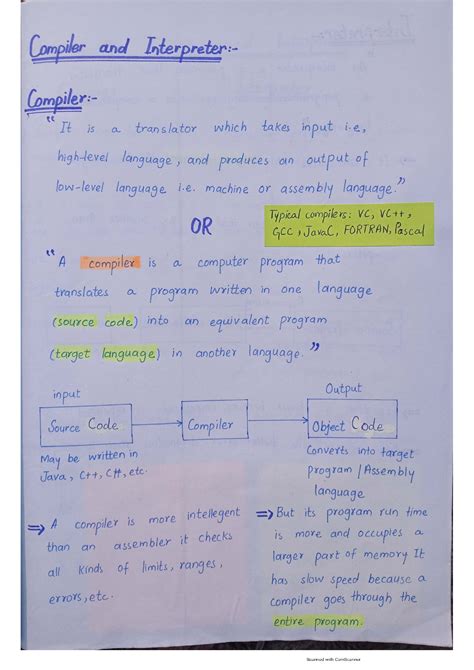 Compiler and Interpreter:-
Compiler:-
“ It is a translator which takes input i.e,
high-level language, and produces an output of
low-level language i.e. machine or assembly language.”
OR
Typical compilers: VC, VC++,
GCC, JavaC, FORTRAN, Pascal
“ A compiler is a computer program that
translates a program written in one language
(source code) into an equivalent program
(target language) in another language.”
input
Output
Source Code
Compiler
Object Code
May be written in
Java, C++, C#, etc.
Converts into target
program / Assembly
language
⇒ A compiler is more intellegent
than an assembler it checks
all kinds of limits, ranges,
errors, etc.
⇒ But its program run time
is more and occupies a
larger part of memory It
has slow speed because a
compiler goes through the
entire program.
Scanned with CamScanner